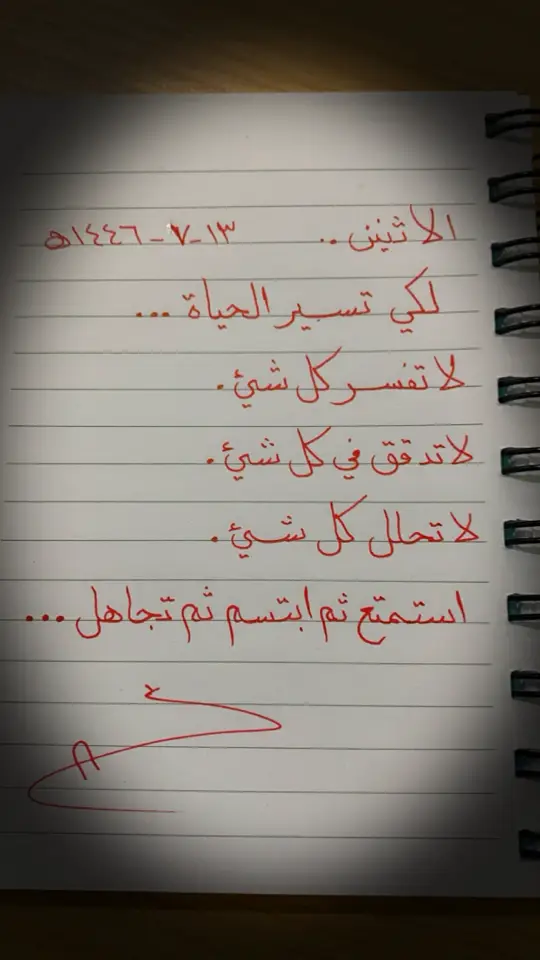 الاثنين .. ١٣-٧-١٤٤٦ه
لكي تسير الحياة ...
لا تفسر كل شيئ.
لا تدقق في كل شيئ.
لا تحلل كل شيئ.
استمتع ثم ابتسم ثم تجاهل ...